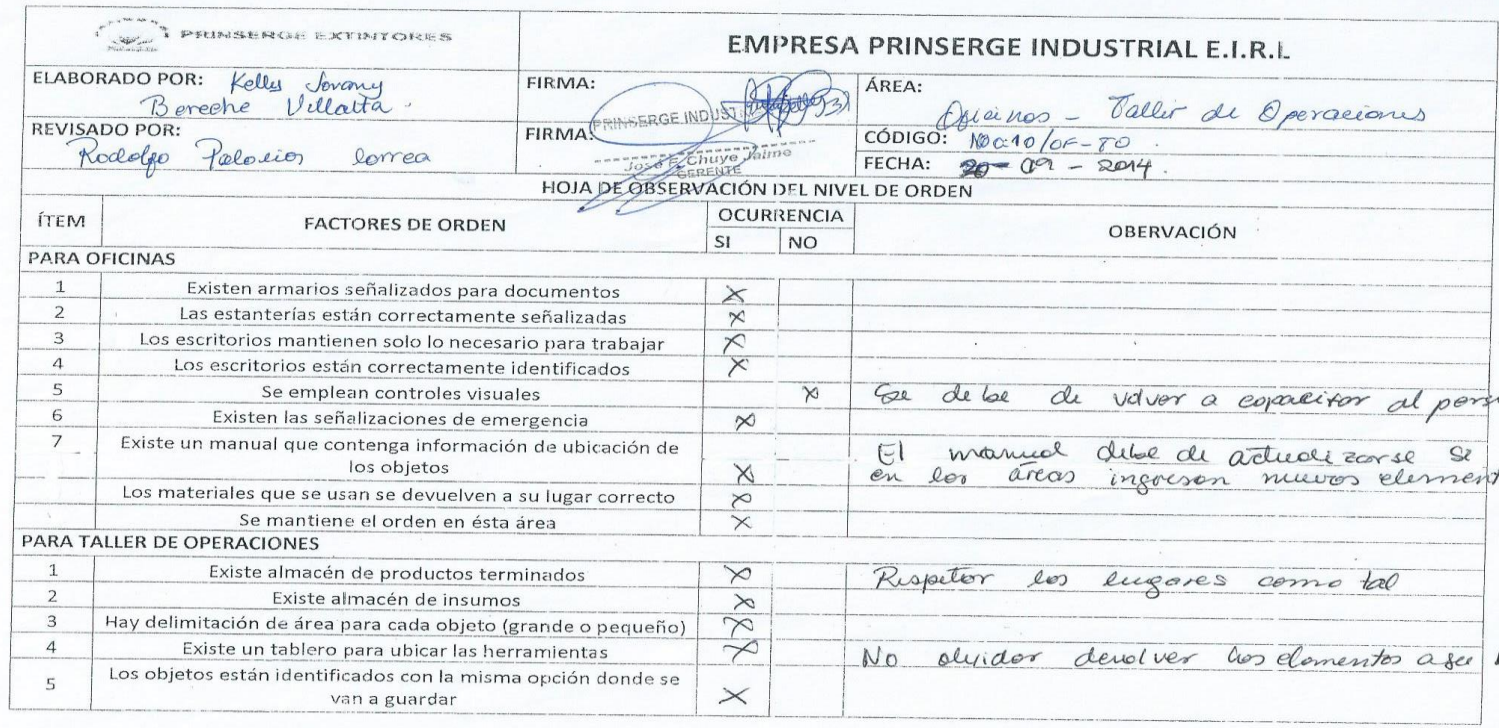 PRINSERGE EXTINTORES
EMPRESA PRINSERGE INDUSTRIAL E.I.R.L
ELABORADO POR: Kelly Jovany
Bereche Villalta.
FIRMA:
ÁREA:
Oficinas - Taller de Operaciones
REVISADO POR:
Rodolfo Palacios Correa
FIRMA:
PRINSERGE INDUST
José E. Chuye Jaime
GERENTE
CÓDIGO: NOC:10/OF-TO.
FECHA: 20 - 09 - 2014.
HOJA DE OBSERVACIÓN DEL NIVEL DE ORDEN
ÍTEM FACTORES DE ORDEN OCURRENCIA OBERVACIÓN
SI NO
PARA OFICINAS
1 Existen armarios señalizados para documentos X
2 Las estanterías están correctamente señalizadas X
3 Los escritorios mantienen solo lo necesario para trabajar X
4 Los escritorios están correctamente identificados X
5 Se emplean controles visuales X Se debe de volver a capacitar al pers
6 Existen las señalizaciones de emergencia X
7 Existe un manual que contenga información de ubicación de
los objetos X
El manual debe de actualizarse si
en los áreas ingresan nuevos element
Los materiales que se usan se devuelven a su lugar correcto X
Se mantiene el orden en ésta área X
PARA TALLER DE OPERACIONES
1 Existe almacén de productos terminados X Respetar los lugares como tal
2 Existe almacén de insumos X
3 Hay delimitación de área para cada objeto (grande o pequeño) X
4 Existe un tablero para ubicar las herramientas X No olvidar devolver los elementos a su
5 Los objetos están identificados con la misma opción donde se
van a guardar X